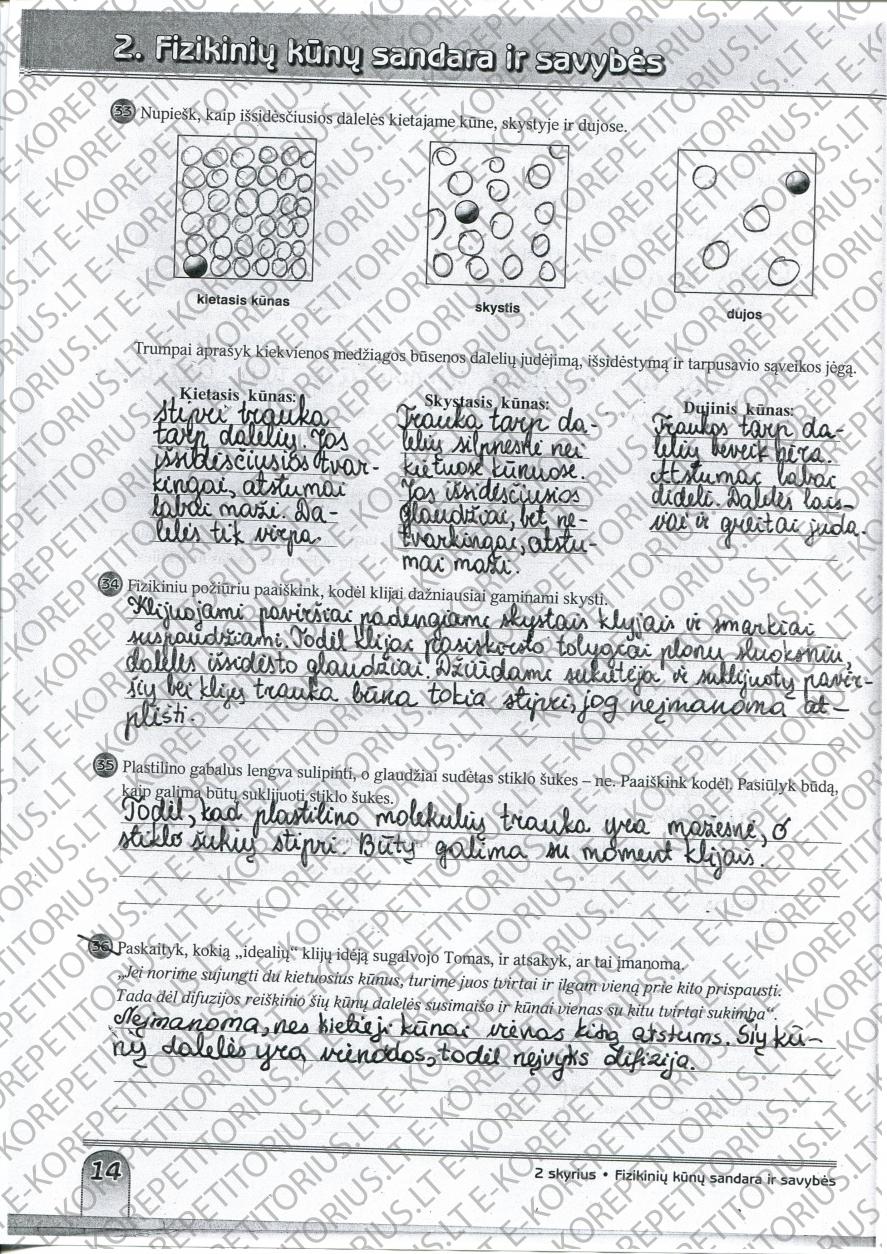 2. Fizikinių kūnų sandara ir savybės
33 Nupiešk, kaip išsidėsčiusios dalelės kietajame kūne, skystyje ir dujose.
kietasis kūnas
skystis
dujos
Trumpai aprašyk kiekvienos medžiagos būsenos dalelių judėjimą, išsidėstymą ir tarpusavio sąveikos jėgą.
Kietasis kūnas:
stipri trauka
tarp dalelių. Jos
išsidėsčiusios tvar-
kingai, atstumai
labai maži. Da-
lelės tik virpa.
Skystasis kūnas:
Trauka tarp da-
lelių silpnesnė nei
kietuose kūnuose.
Jos išsidėsčiusios
glaudžiai, bet ne-
tvarkingai, atstu-
mai maži.
Dujinis kūnas:
Traukos tarp da-
lelių beveik nėra.
Atstumai labai
dideli. Dalelės lais-
vai ir greitai juda.
34 Fizikiniu požiūriu paaiškink, kodėl klijai dažniausiai gaminami skysti.
Klijuojami paviršiai padengiami skystais klyjais ir smarkiai
suspaudžiami. Todėl klijai pasiskirsto tolygiai plonu sluoksniu,
dalelės išsidėsto glaudžiai. Džiūdami sukietėja ir suklijuotų pavir-
šių bei klijų trauka būna tokia stipri, jog neįmanoma at-
plišti.
35 Plastilino gabalus lengva sulipinti, o glaudžiai sudėtas stiklo šukes – ne. Paaiškink kodėl. Pasiūlyk būdą,
kaip galima būtų suklijuoti stiklo šukes.
Todėl, kad plastilino molekulių trauka yra mažesnė, o
stiklo šukių stipri. Būtų galima su moment klijais.
36 Paskaityk, kokią „idealių“ klijų idėją sugalvojo Tomas, ir atsakyk, ar tai įmanoma.
„Jei norime sujungti du kietuosius kūnus, turime juos tvirtai ir ilgam vieną prie kito prispausti.
Tada dėl difuzijos reiškinio šių kūnų dalelės susimaišo ir kūnai vienas su kitu tvirtai sukimba“.
Neįmanoma, nes kietieji kūnai vienas kitą atstums. Šių kū-
nų dalelės yra vienodos, todėl neįvyks difizija.
14
2 skyrius • Fizikinių kūnų sandara ir savybės
E-KOREPETITORIUS.LT